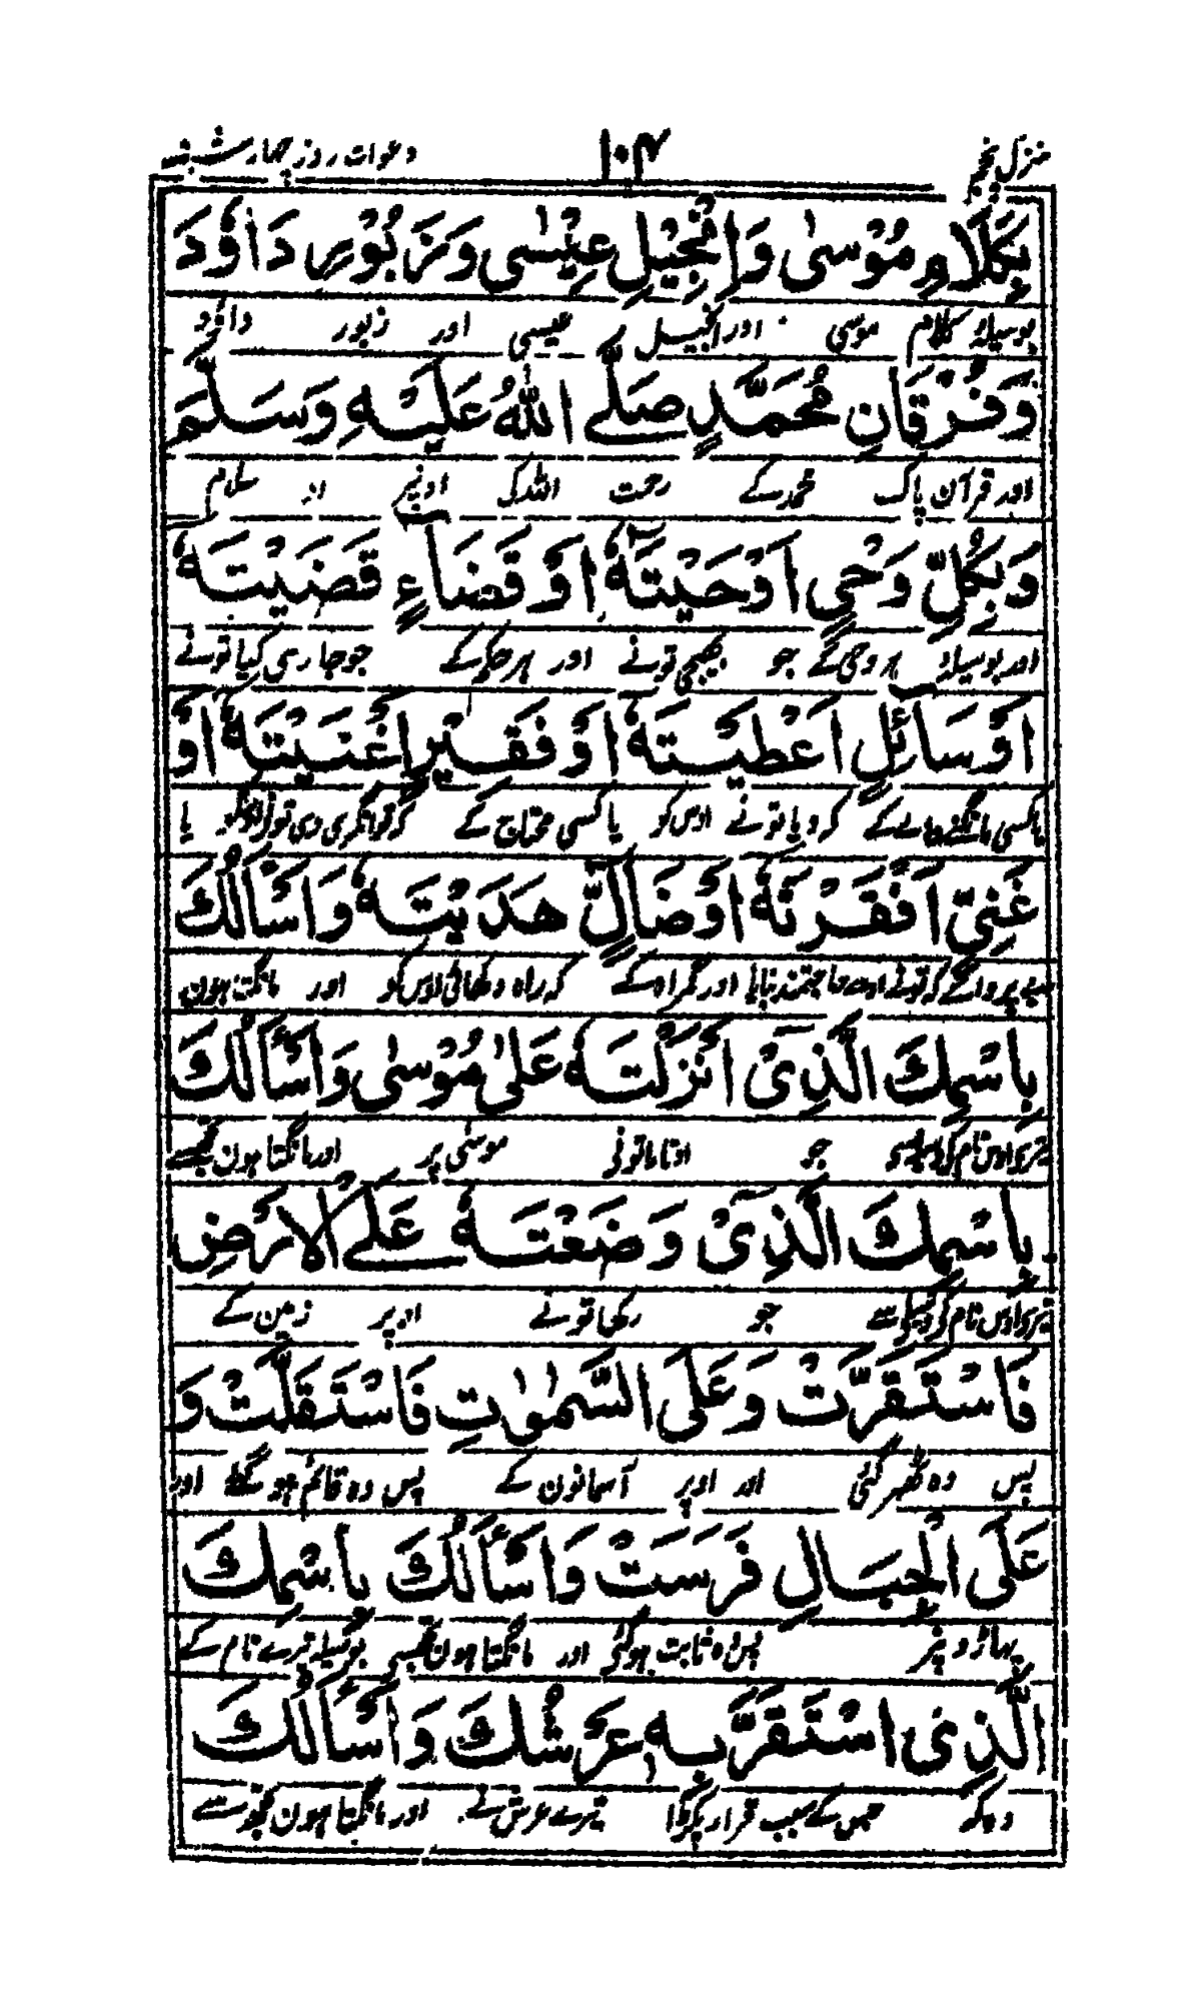 منزل پنجم ۱۰۴ دعوات روز چهارشنبه
بِكَلَامِ مُوْسىٰ وَاِنْجِيْلِ عِيْسٰى وَزَبُوْرِ دَاوٗدَ
بوسیلہ کلام موسی اور انجیل عیسی اور زبور داؤد
وَفُرْقَانِ مُحَمَّدٍ صَلَّے اللّٰهُ عَلَيْهِ وَسَلَّمَ
اور قرآن پاک محمد کے رحمت اللہ کی اوپر سلام
وَبِكُلِّ وَحْيٍ اَوْحَيْتَهٗٓ اَوْ قَضَآءٍ قَضَيْتَهٗ
اور بوسیلہ ہر وحی کے جو بھیجی تونے اور ہر حکم کے جو جاری کیا تونے
اَوْ سَآئِلٍ اَعْطَيْتَهٗ اَوْ فَقِيْرٍ اَغْنَيْتَهٗ اَوْ
یا کسی مانگنے والے کے کہ دیا تونے اوس کو یا کسی محتاج کے کہ توانگری دی تونے اوسکو یا
غَنِيٍّ اَفْقَرْتَهٗ اَوْ ضَآلٍّ هَدَيْتَهٗ وَاَسْأَلُكَ
بے پروا کے کہ تونے اوسے حاجتمند بنایا اور گمراہ کے کہ راہ دکھائی اوس کو اور مانگتا ہون
بِاسْمِكَ الَّذِيْٓ اَنْزَلْتَهٗ عَلىٰ مُوْسىٰ وَاَسْأَلُكَ
تیری اوس نام کی وسیلہ سی جو اوتارا تونی موسٰی پر اور مانگتا ہون تجھسے
بِاسْمِكَ الَّذِيْ وَضَعْتَهٗ عَلَے الْاَرْضِ
تیری اوس نام کے وسیلے سے جو رکھا تونے اوپر زمین کے
فَاسْتَقَرَّتْ وَعَلَى السَّمٰوٰتِ فَاسْتَقَلَّتْ وَ
پس وہ ٹھہر گئی اور اوپر آسمانون کے پس وہ قائم ہو گئے اور
عَلَى الْجِبَالِ فَرَسَتْ وَاَسْأَلُكَ بِاسْمِكَ
پہاڑو نپر پس وہ ثابت ہو گئی اور مانگتا ہون تجھسی بوسیلہ تیرے نام کے
الَّذِي اسْتَقَرَّ بِهٖ عَرْشُكَ وَاَسْأَلُكَ
وہ کہ جس کے سبب قرار پکڑا تیرے عرش نے اور مانگتا ہون تجھ سے